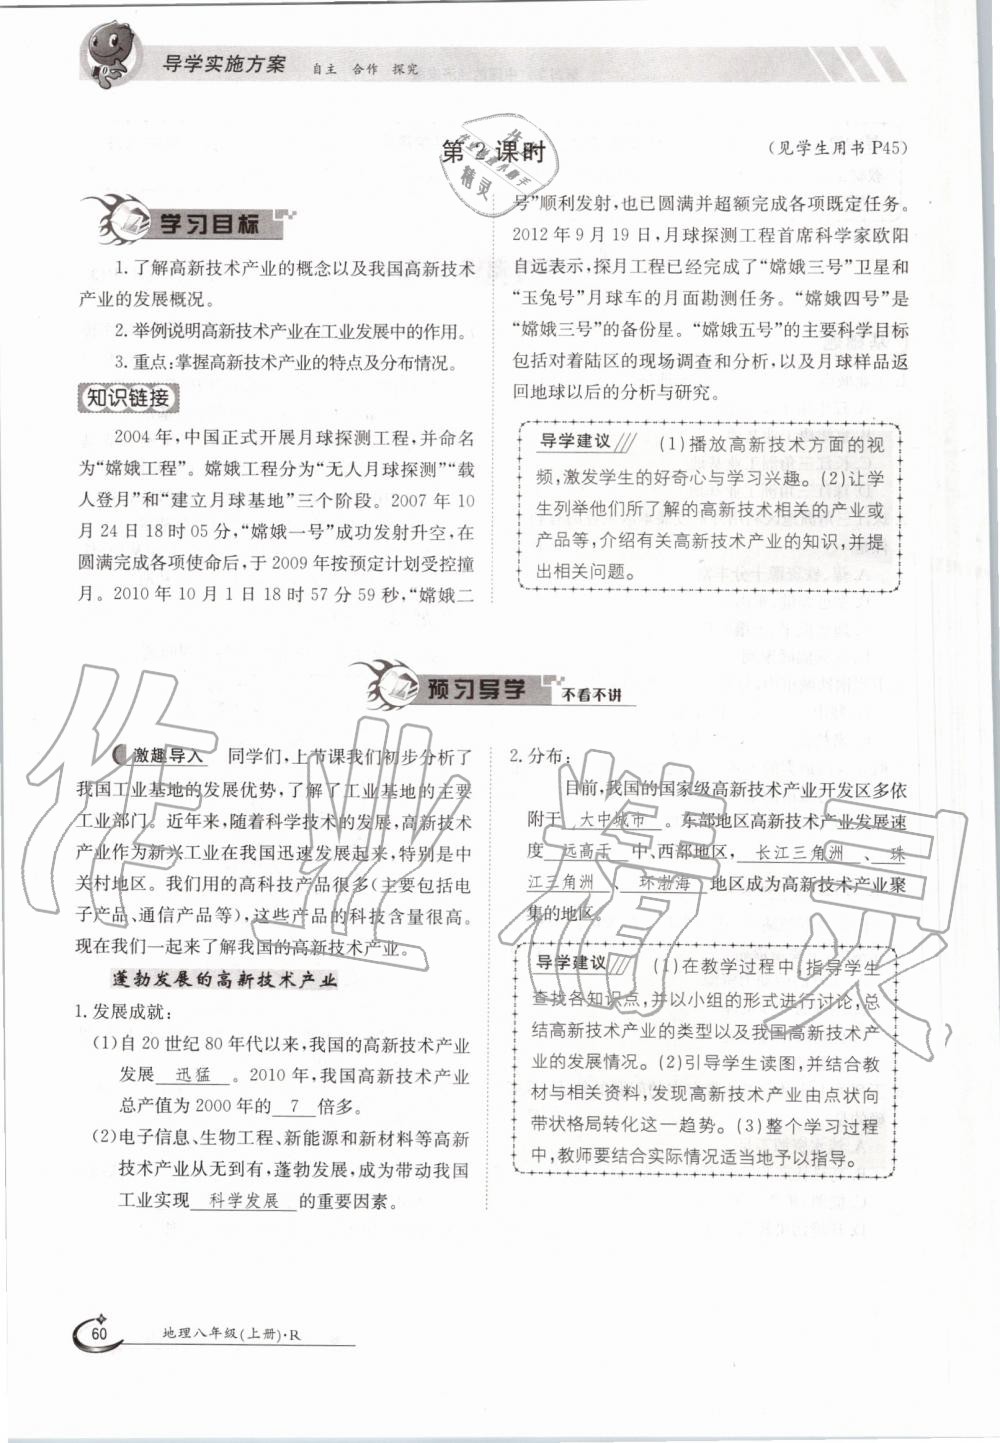 导学实施方案 自主 合作 探究
第2课时
(见学生用书 P45)
学习目标
1. 了解高新技术产业的概念以及我国高新技术
产业的发展概况。
2. 举例说明高新技术产业在工业发展中的作用。
3. 重点:掌握高新技术产业的特点及分布情况。
知识链接
2004 年,中国正式开展月球探测工程,并命名
为“嫦娥工程”。嫦娥工程分为“无人月球探测”“载
人登月”和“建立月球基地”三个阶段。2007 年 10
月 24 日 18 时 05 分,“嫦娥一号”成功发射升空,在
圆满完成各项使命后,于 2009 年按预定计划受控撞
月。2010 年 10 月 1 日 18 时 57 分 59 秒,“嫦娥二
号”顺利发射,也已圆满并超额完成各项既定任务。
2012 年 9 月 19 日,月球探测工程首席科学家欧阳
自远表示,探月工程已经完成了“嫦娥三号”卫星和
“玉兔号”月球车的月面勘测任务。“嫦娥四号”是
“嫦娥三号”的备份星。“嫦娥五号”的主要科学目标
包括对着陆区的现场调查和分析,以及月球样品返
回地球以后的分析与研究。
导学建议 (1)播放高新技术方面的视
频,激发学生的好奇心与学习兴趣。(2)让学
生列举他们所了解的高新技术相关的产业或
产品等,介绍有关高新技术产业的知识,并提
出相关问题。
预习导学 不看不讲
激趣导入 同学们,上节课我们初步分析了
我国工业基地的发展优势,了解了工业基地的主要
工业部门。近年来,随着科学技术的发展,高新技术
产业作为新兴工业在我国迅速发展起来,特别是中
关村地区。我们用的高科技产品很多(主要包括电
子产品、通信产品等),这些产品的科技含量很高。
现在我们一起来了解我国的高新技术产业。
蓬勃发展的高新技术产业
1. 发展成就:
(1)自 20 世纪 80 年代以来,我国的高新技术产业
发展 迅猛 。2010 年,我国高新技术产业
总产值为 2000 年的 7 倍多。
(2)电子信息、生物工程、新能源和新材料等高新
技术产业从无到有,蓬勃发展,成为带动我国
工业实现 科学发展 的重要因素。
2. 分布:
目前,我国的国家级高新技术产业开发区多依
附于 大中城市 。东部地区高新技术产业发展速
度 远高于 中、西部地区, 长江三角洲 、 珠
江三角洲 、 环渤海 地区成为高新技术产业聚
集的地区。
导学建议 (1)在教学过程中,指导学生
查找各知识点,并以小组的形式进行讨论,总
结高新技术产业的类型以及我国高新技术产
业的发展情况。(2)引导学生读图,并结合教
材与相关资料,发现高新技术产业由点状向
带状格局转化这一趋势。(3)整个学习过程
中,教师要结合实际情况适当地予以指导。
60 地理八年级(上册)·R
作业精灵